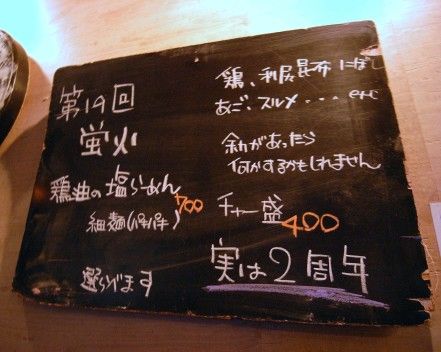 第19回
蛍火
鶏油の塩らーめん
700
細麺(パキパキ)
選べます
鶏、利尻昆布 にぼし
あご、スルメ...etc
余力があったら
何かするかもしれません
チャー盛
400
実は2周年